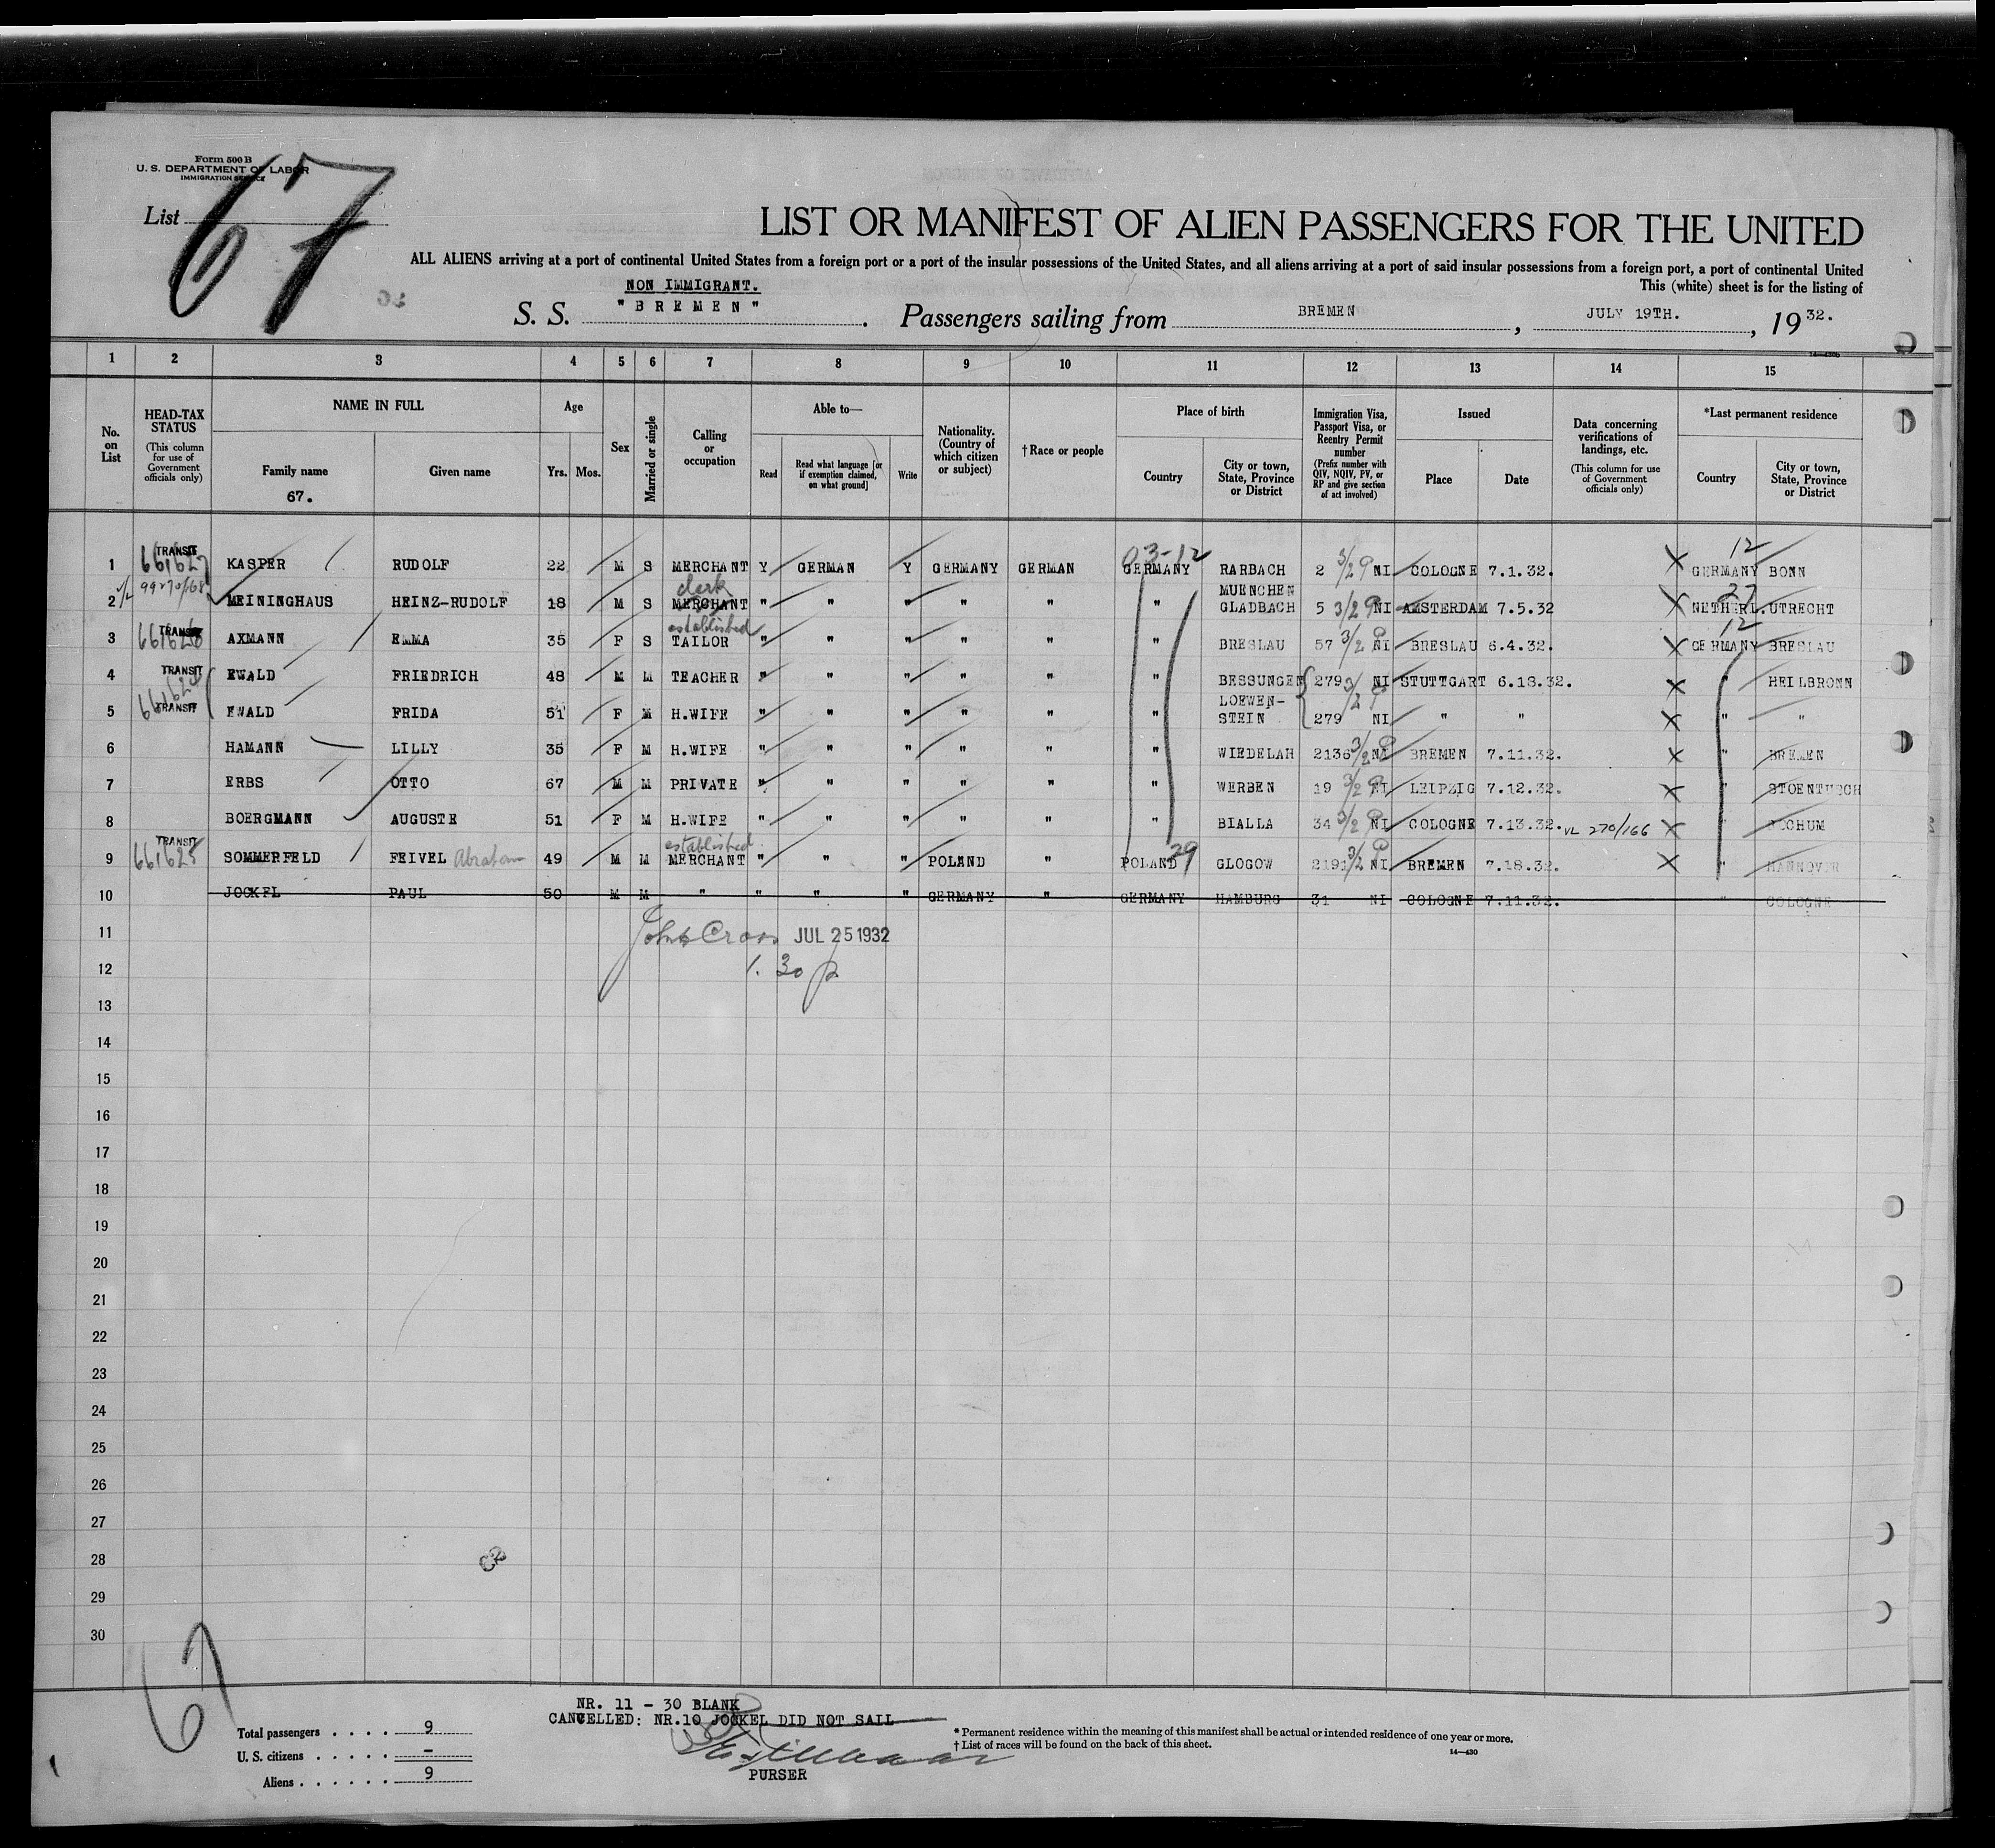 Form 500 B
U. S. DEPARTMENT OF LABOR
IMMIGRATION SERVICE
List 67
LIST OR MANIFEST OF ALIEN PASSENGERS FOR THE UNITED
ALL ALIENS arriving at a port of continental United States from a foreign port or a port of the insular possessions of the United States, and all aliens arriving at a port of said insular possessions from a foreign port, a port of continental United
This (white) sheet is for the listing of
NON IMMIGRANT.
S. S. "BREMEN". Passengers sailing from BREMEN, JULY 19TH., 1932.
1 2 3 4 5 6 7 8 9 10 11 12 13 14 15
No. on List
HEAD-TAX STATUS (This column for use of Government officials only)
NAME IN FULL Family name Given name
67.
Age Yrs. Mos.
Sex
Married or single
Calling or occupation
Able to— Read Read what language [or if exemption claimed, on what ground] Write
Nationality. (Country of which citizen or subject)
†Race or people
Place of birth Country City or town, State, Province or District
Immigration Visa, Passport Visa, or Reentry Permit number (Prefix number with QIV, NQIV, PV, or RP and give section of act involved)
Issued Place Date
Data concerning verifications of landings, etc. (This column for use of Government officials only)
*Last permanent residence Country City or town, State, Province or District
03-12 12
1 TRANSIT 661627 KASPER RUDOLF 22 M S MERCHANT Y GERMAN Y GERMANY GERMAN GERMANY RARBACH 2 3/2 P NI COLOGNE 7.1.32. X GERMANY BONN
2 99270/168 MEININGHAUS HEINZ-RUDOLF 18 M S MERCHANT clerk " " " " " " MUENCHEN GLADBACH 5 3/2 P NI AMSTERDAM 7.5.32 X 27 NETHERL. UTRECHT
3 TRANSIT 661626 AXMANN EMMA 35 F S established TAILOR " " " " " " BRESLAU 57 3/2 P NI BRESLAU 6.4.32. X 12 GERMANY BRESLAU
4 TRANSIT EWALD FRIEDRICH 48 M M TEACHER " " " " " " BESSUNGEN 279 3/2 P NI STUTTGART 6.18.32. X " HEILBRONN
5 TRANSIT EWALD FRIDA 51 F M H.WIFE " " " " " " LOEWEN-STEIN 279 NI " " X " "
6 HAMANN LILLY 35 F M H.WIFE " " " " " " WIEDELAH 2136 3/2 P NI BREMEN 7.11.32. X " BREMEN
7 ERBS OTTO 67 M M PRIVATE " " " " " " WERBEN 19 3/2 P NI LEIPZIG 7.12.32. X "
8 BOERGMANN AUGUSTE 51 F M H.WIFE " " " " " " BIALLA 34 3/2 P NI COLOGNE 7.13.32. VL 270/166 X " BOCHUM
9 TRANSIT 661625 SOMMERFELD FEIVEL Abraham 49 M M established MERCHANT " " " POLAND " POLAND 29 GLOGOW 2191 3/2 P NI BREMEN 7.18.32. X " HANNOVER
10 JOCKEL PAUL 50 M M " " " " GERMANY " GERMANY HAMBURG 31 NI COLOGNE 7.11.32. " COLOGNE
11 JUL 25 1932
12 1. 30 p
13
14
15
16
17
18
19
20
21
22
23
24
25
26
27
28
29
30
67
NR. 11 - 30 BLANK
CANCELLED: NR.10 JOCKEL DID NOT SAIL
PURSER
Total passengers . . . . 9
U. S. citizens . . . . . –
Aliens . . . . . . 9
* Permanent residence within the meaning of this manifest shall be actual or intended residence of one year or more.
† List of races will be found on the back of this sheet.
14—430